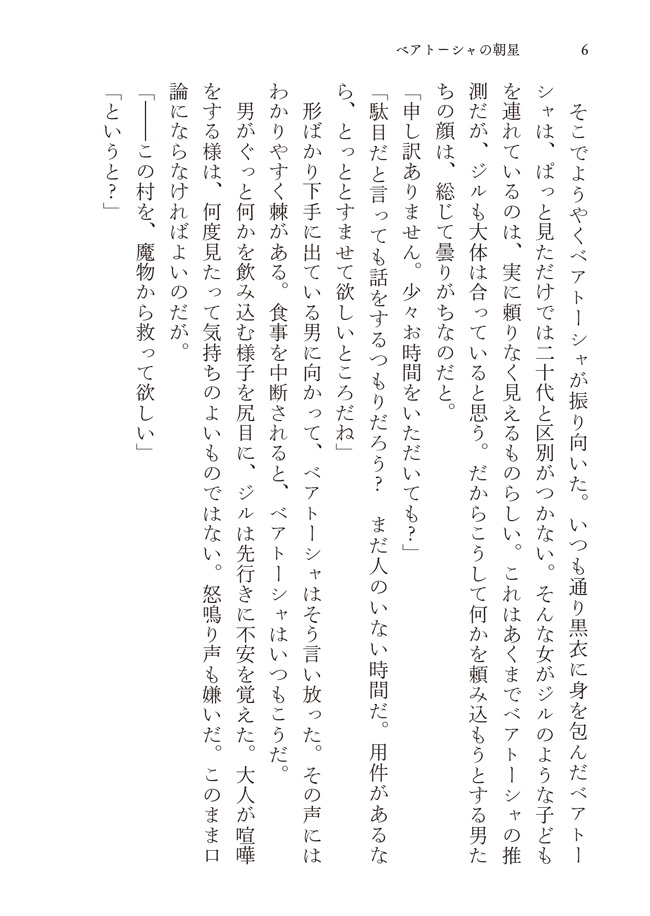 ベアトーシャの朝星
6
そこでようやくベアトーシャが振り向いた。いつも通り黒衣に身を包んだベアトー
シャは、ぱっと見ただけでは二十代と区別がつかない。そんな女がジルのような子ども
を連れているのは、実に頼りなく見えるものらしい。これはあくまでベアトーシャの推
測だが、ジルも大体は合っていると思う。だからこうして何かを頼み込もうとする男た
ちの顔は、総じて曇りがちなのだと。
「申し訳ありません。少々お時間をいただいても?」
「駄目だと言っても話をするつもりだろう? まだ人のいない時間だ。用件があるな
ら、とっととすませて欲しいところだね」
形ばかり下手に出ている男に向かって、ベアトーシャはそう言い放った。その声には
わかりやすく棘がある。食事を中断されると、ベアトーシャはいつもこうだ。
男がぐっと何かを飲み込む様子を尻目に、ジルは先行きに不安を覚えた。大人が喧嘩
をする様は、何度見たって気持ちのよいものではない。怒鳴り声も嫌いだ。このまま口
論にならなければよいのだが。
「――この村を、魔物から救って欲しい」
「というと?」